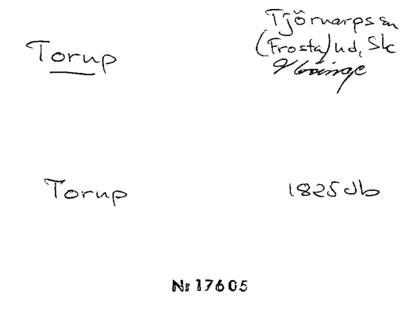 Torup
Tjörnarps sn
(Frosta)hd, Sk
Torup
1825 Jb
Nr 17605